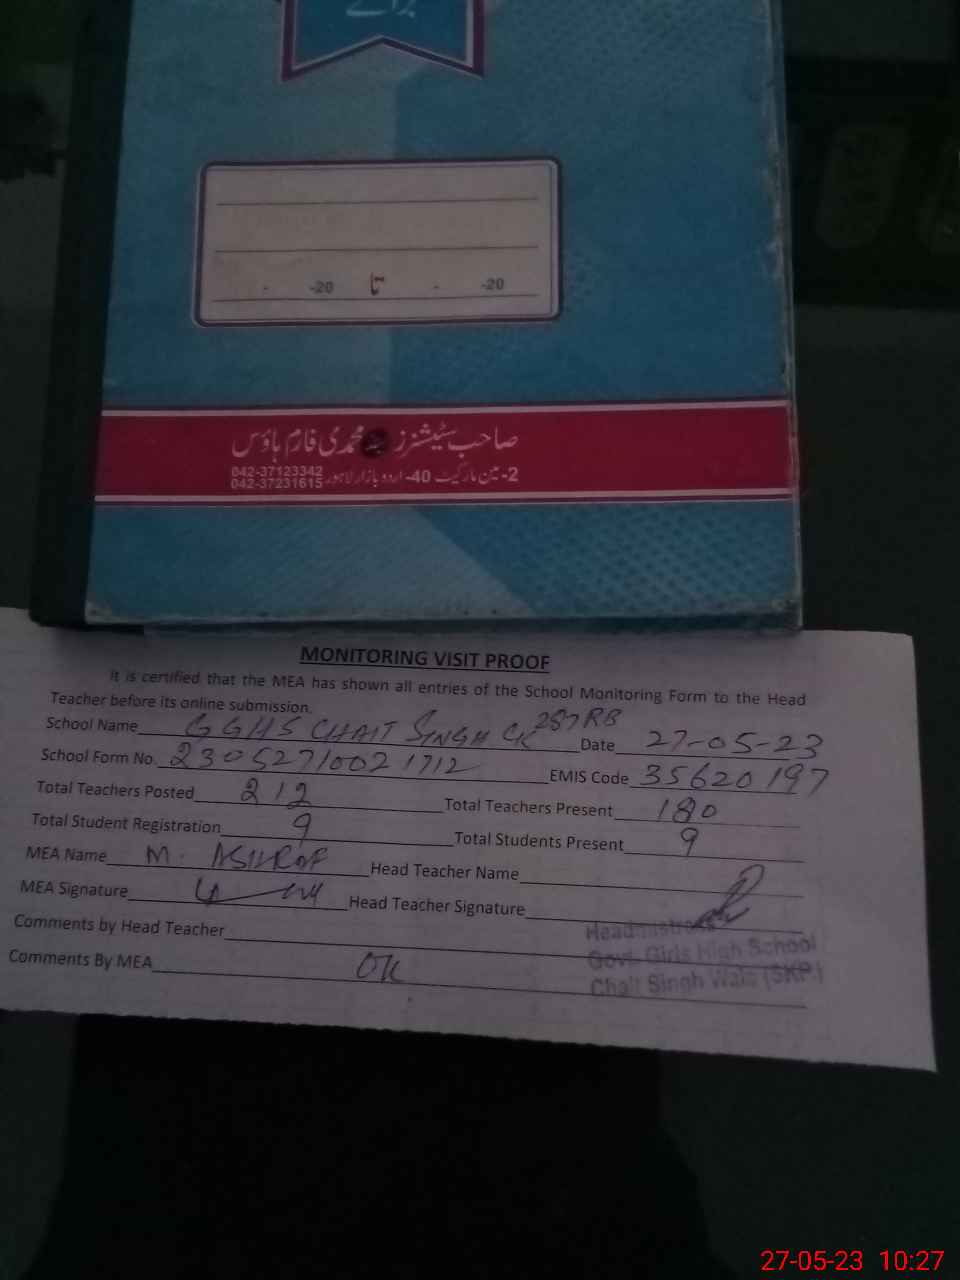 برائے
-20 تا -20
صاحب سٹیشنرز محمدی فارم ہاؤس
2-مین مارکیٹ 40-اردو بازار لاہور 042-37123342
042-37231615
MONITORING VISIT PROOF
It is certified that the MEA has shown all entries of the School Monitoring Form to the Head
Teacher before its online submission.
School Name GGHS CHAIT SINGH CK 287RB Date 27-05-23
School Form No. 23052710021712 EMIS Code 35620197
Total Teachers Posted 212 Total Teachers Present 180
Total Student Registration 9 Total Students Present 9
MEA Name M. ASHRAF Head Teacher Name
MEA Signature Head Teacher Signature
Comments by Head Teacher Headmistress
Govt. Girls High School
Comments By MEA OK Chait Singh Wala (SKP)
27-05-23 10:27